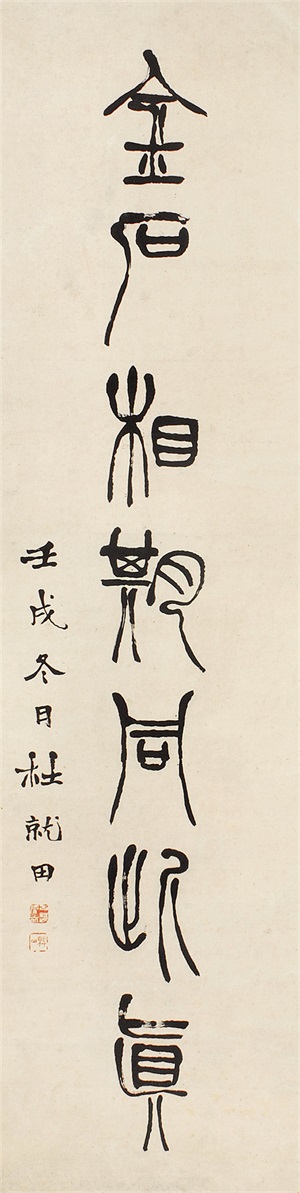 金石相期同此真
壬戌冬月杜就田